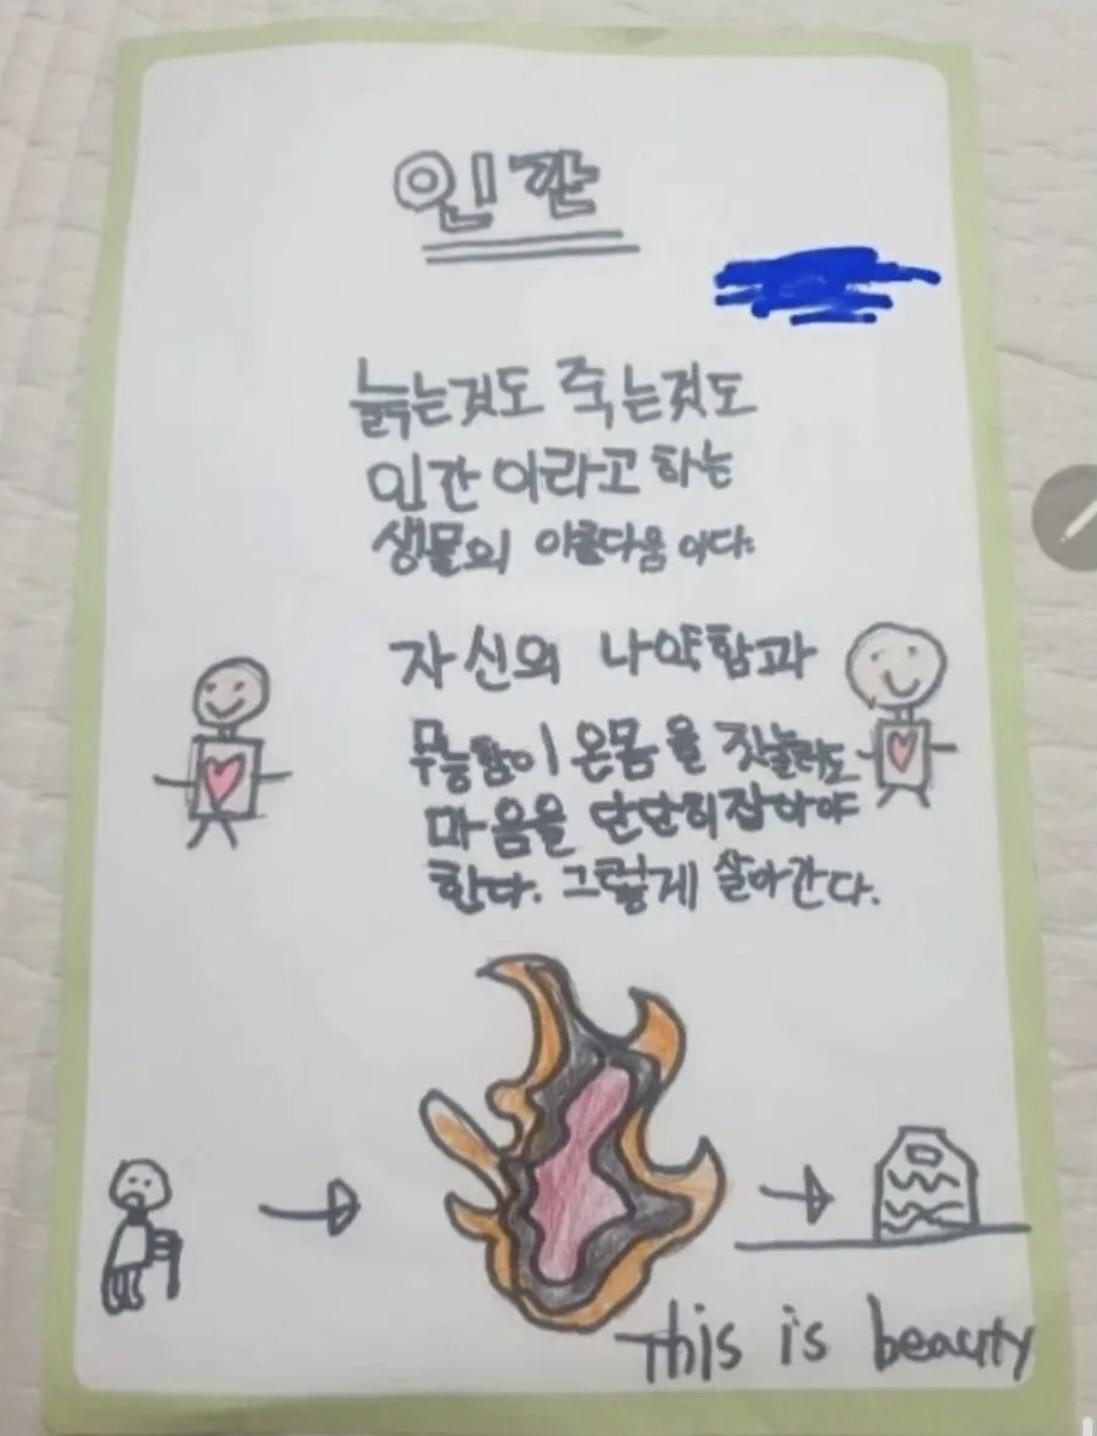 인간
늙는것도 죽는것도
인간 이라고 하는
생물의 아름다움 이다.
자신의 나약함과
무능함이 온몸을 짓눌러도
마음을 단단히잡아야
한다. 그렇게 살아간다.
This is beauty